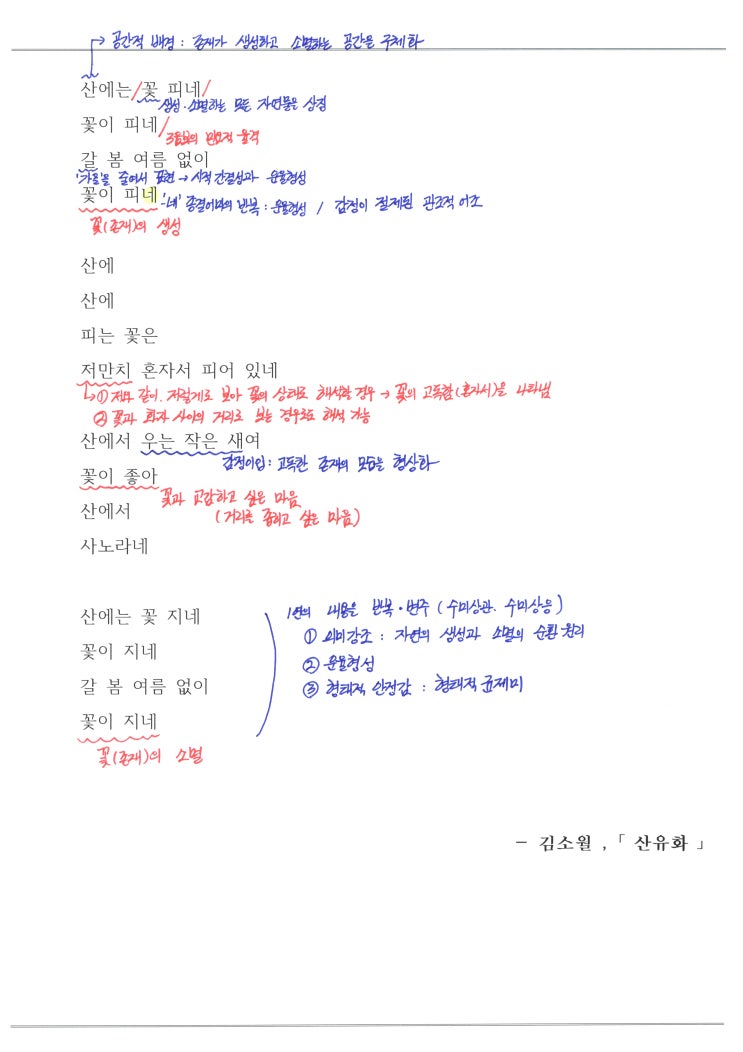 공간적 배경 : 존재가 생성하고 소멸하는 공간을 구체화
산에는/꽃 피네/
생성·소멸하는 모든 자연물을 상징
꽃이 피네/
3음보의 민요적 율격
갈 봄 여름 없이
'가을'을 줄여서 표현 → 시적 간결성과 운율형성
꽃이 피네
'-네' 종결어미의 반복 : 운율형성 / 감정이 절제된 관조적 어조
꽃(존재)의 생성
산에
산에
피는 꽃은
저만치 혼자서 피어 있네
① 저와 같이. 저렇게로 보아 꽃의 상태로 해석할 경우 → 꽃의 고독함(혼자서)을 나타냄
② 꽃과 화자 사이의 거리로 보는 경우로도 해석 가능
산에서 우는 작은 새여
감정이입 : 고독한 존재의 모습을 형상화
꽃이 좋아
꽃과 교감하고 싶은 마음
산에서
(거리를 줄이고 싶은 마음)
사노라네
산에는 꽃 지네
1연의 내용을 반복·변주 (수미상관. 수미상응)
① 의미강조 : 자연의 생성과 소멸의 순환 원리
꽃이 지네
② 운율형성
갈 봄 여름 없이
③ 형태적 안정감 : 형태적 균제미
꽃이 지네
꽃(존재)의 소멸
- 김소월 ,「 산유화 」